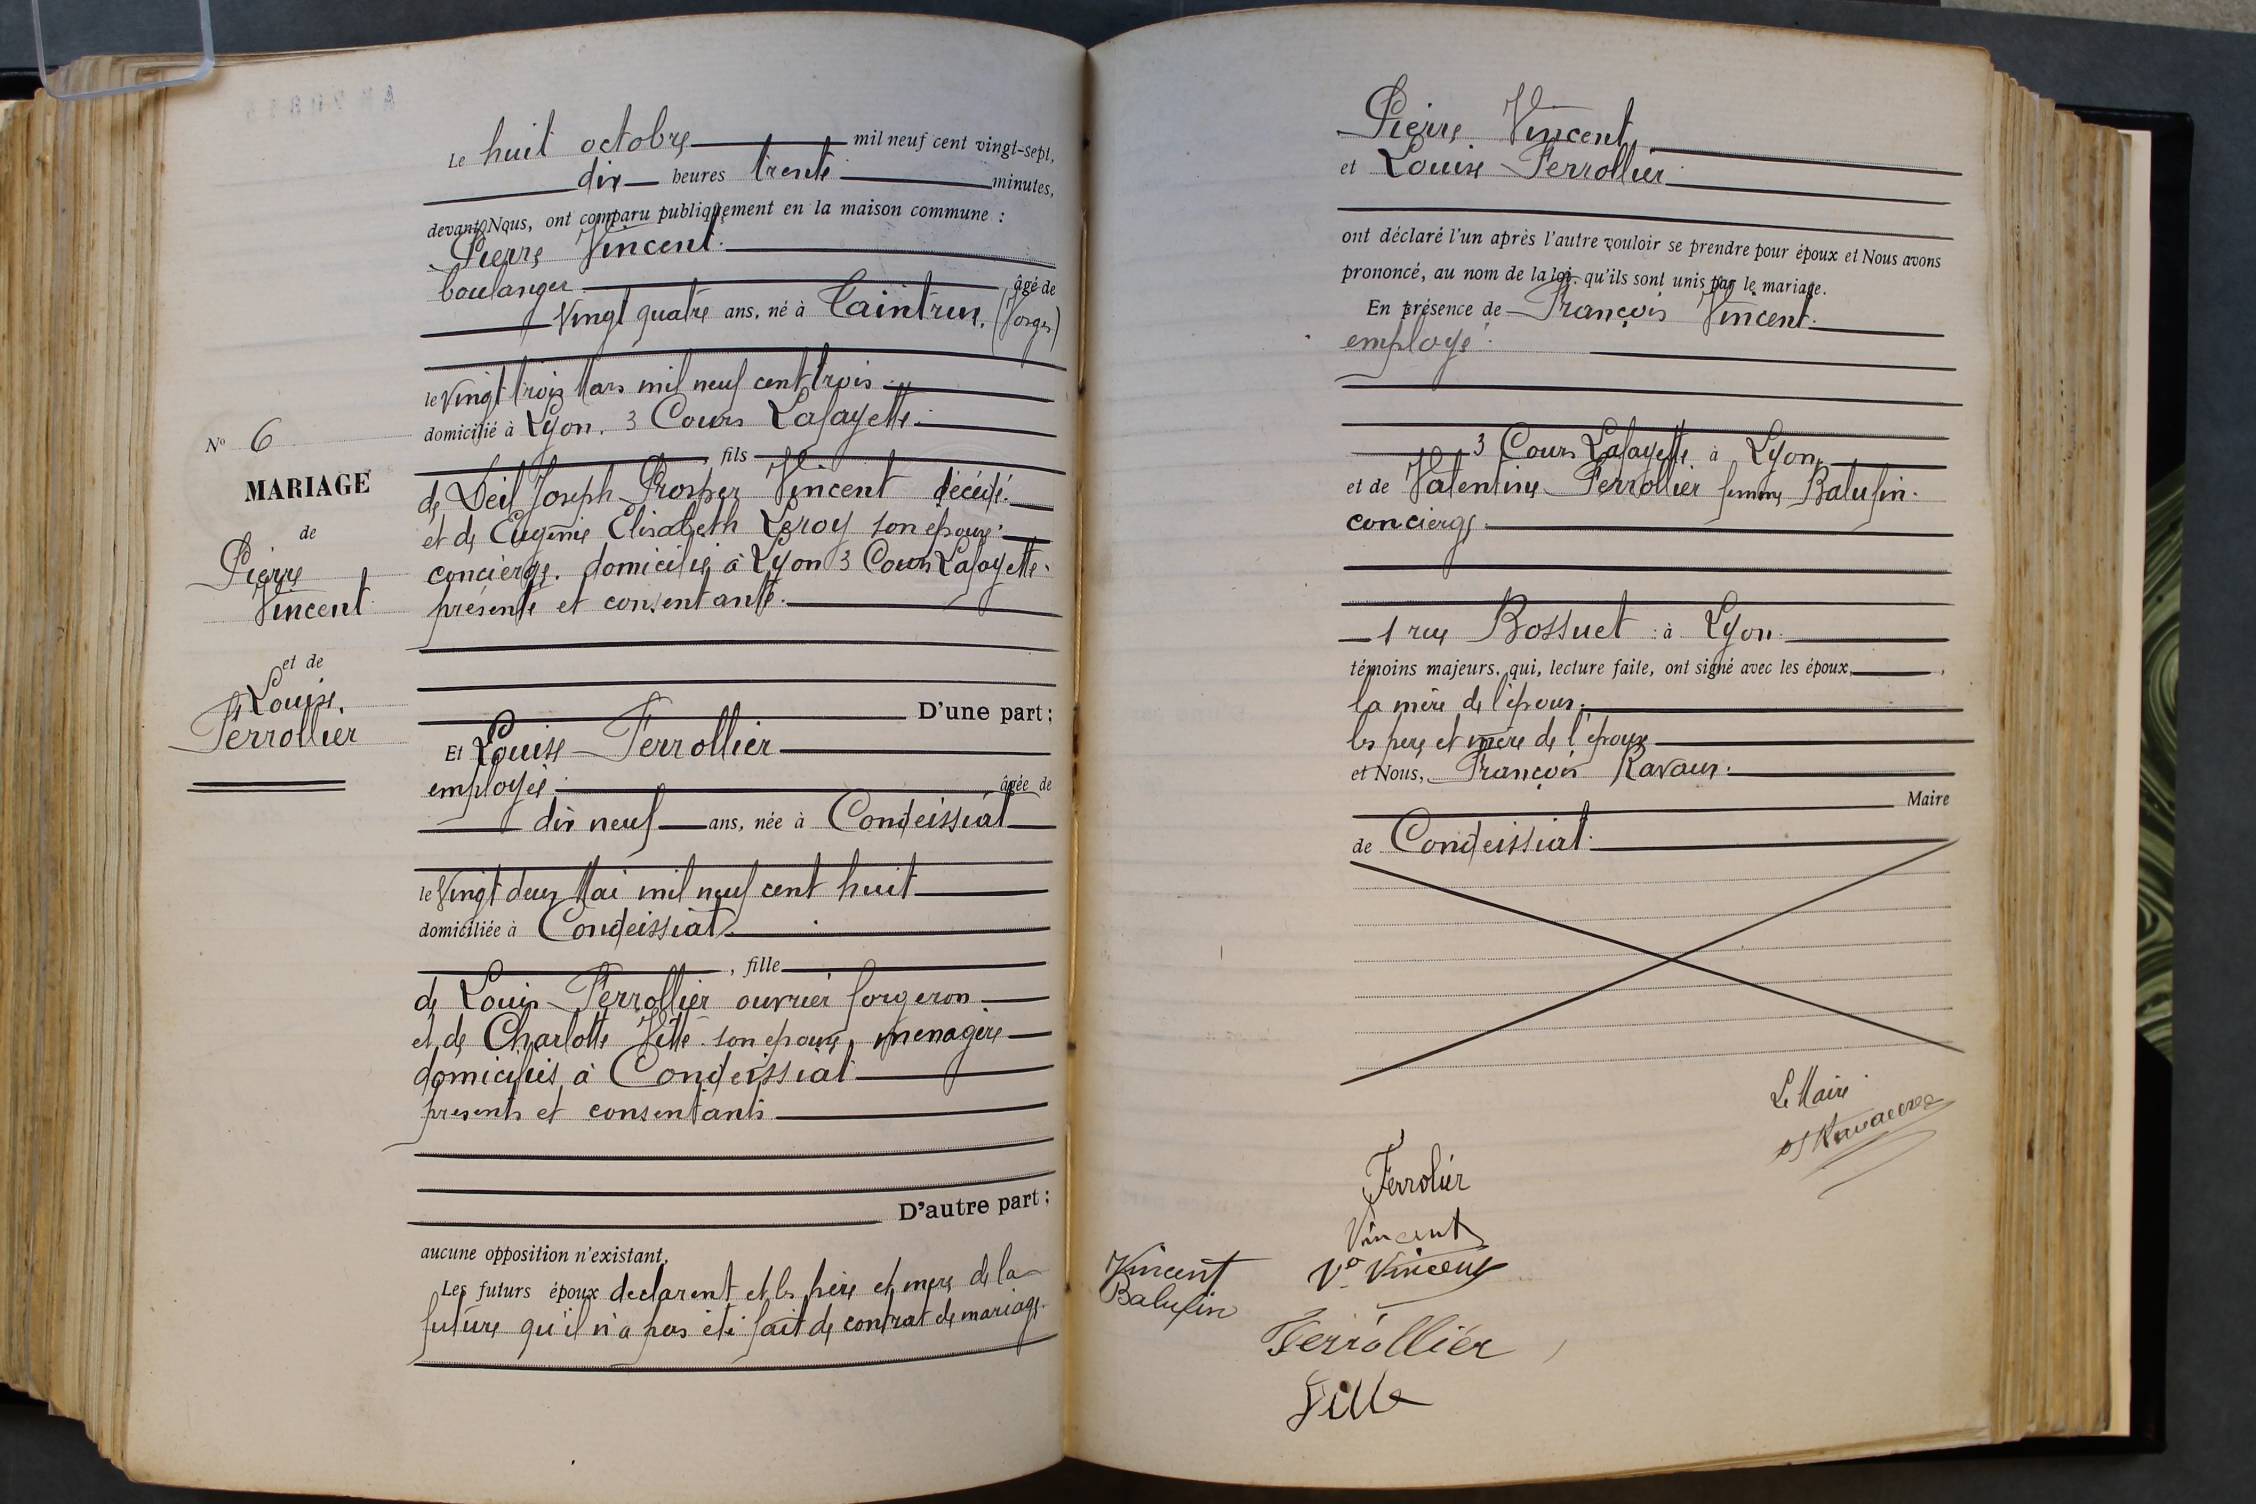 Le huit octobre mil neuf cent vingt-sept,
dix heures trente minutes,
devant Nous, ont comparu publiquement en la maison commune :
Pierre Vincent
boulanger âgé de
Vingt quatre ans, né à Taintrux (Vosges)
le Vingt trois Mars mil neuf cent trois
domicilié à Lyon. 3 Cours Lafayette
, fils
de Joseph Prosper Vincent décédé
et de Eugénie Elisabeth Leroy son épouse
concierge. domiciliée à Lyon 3 Cours Lafayette
présente et consentante.
D'une part ;
Et Louise Ferrollier
employée âgée de
dix neuf ans, née à Condeissiat
le Vingt deux Mai mil neuf cent huit
domiciliée à Condeissiat
, fille
de Louis Ferrollier ouvrier forgeron
et de Charlotte son epouse, menagère
domiciliés à Condeissiat
presents et consentants
D'autre part ;
aucune opposition n'existant,
Les futurs époux declarent et les père et mere de la
future qu'il n'a pas été fait de contrat de mariage.
No 6
MARIAGE
de
Pierre
Vincent
et de
Louise
Ferrollier
Pierre Vincent
et Louise Ferrollier
ont déclaré l'un après l'autre vouloir se prendre pour époux et Nous avons
prononcé, au nom de la loi, qu'ils sont unis par le mariage.
En présence de François Vincent
employé
3 Cours Lafayette à Lyon
et de Valentine Ferrollier femme Balufin
concierge
1 rue Bossuet à Lyon
témoins majeurs, qui, lecture faite, ont signé avec les époux,
la mère de l'époux.
les pere et mère de l'épouse
et Nous, François Ravaux
Maire
de Condeissiat
Le Maire
Ferrolier
Vincent
Vve Vincent
Vincent
Balufin
Ferrollier